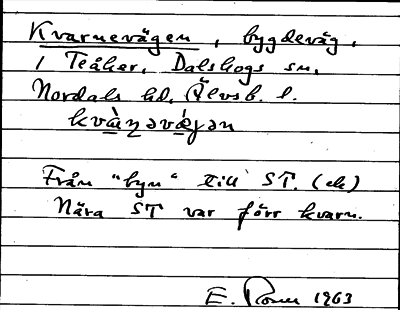 Kvarnevägen, bygdeväg,
i Teåker, Dalskogs sn,
Nordals hd, Älvsb. l.
kvàɳəvǽjən
Från "byn" till ST. (ek)
Nära ST var förr kvarn.
E. 1963